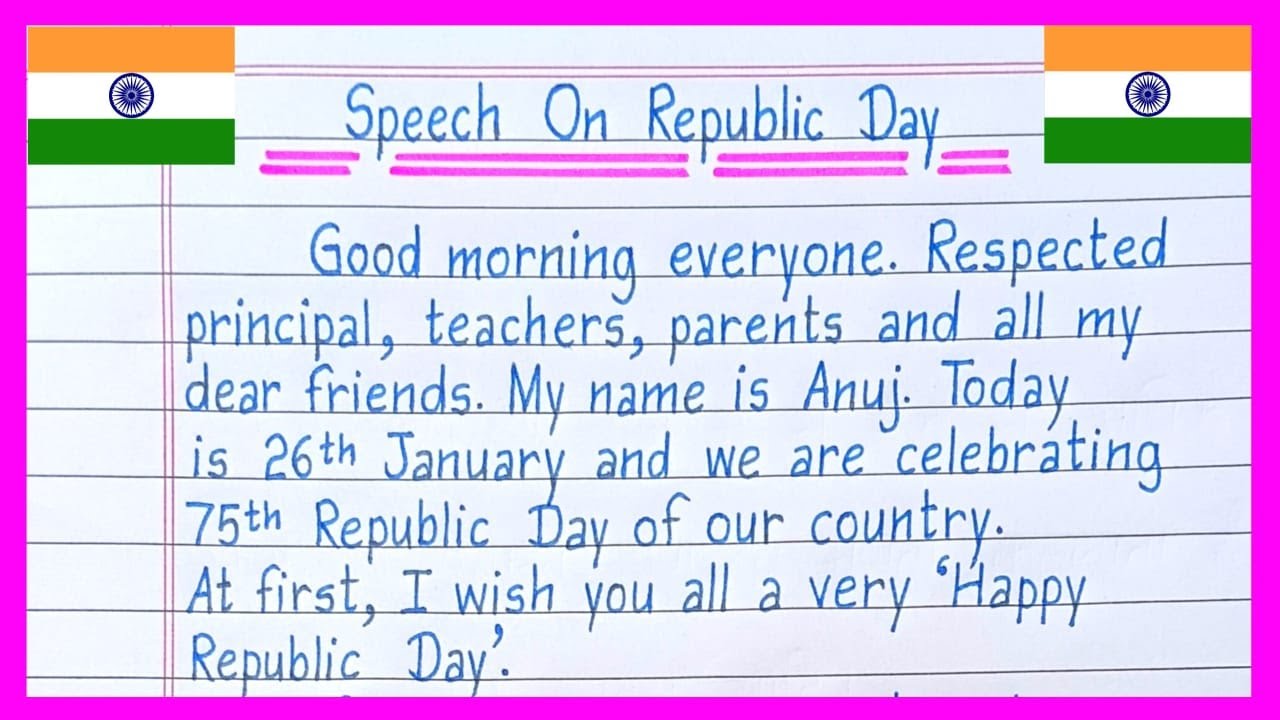 Speech On Republic Day
Good morning everyone. Respected
principal, teachers, parents and all my
dear friends. My name is Anuj. Today
is 26th January and we are celebrating
75th Republic Day of our country.
At first, I wish you all a very ‘Happy
Republic Day’.